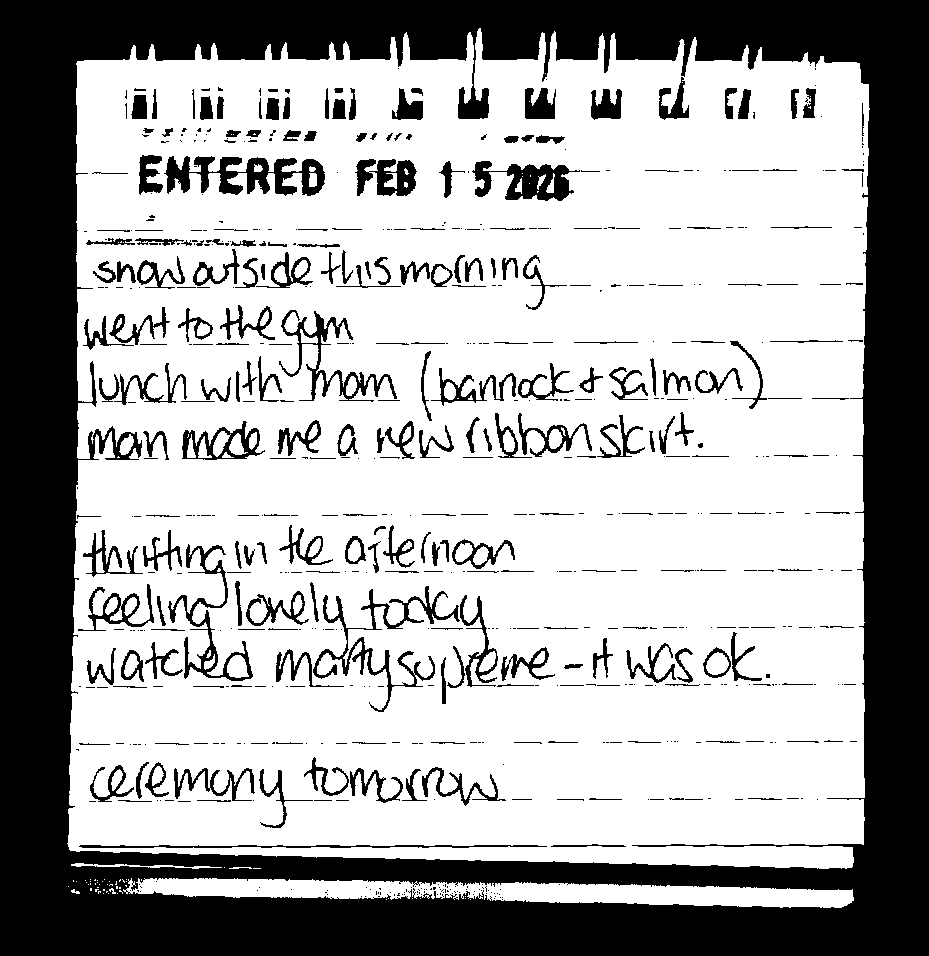 ENTERED FEB 15 2026
snow outside this morning
went to the gym
lunch with mom (bannock & salmon)
mom made me a new ribbon skirt.
thrifting in the afternoon
feeling lonely today
watched marty supreme - it was ok.
ceremony tomorrow